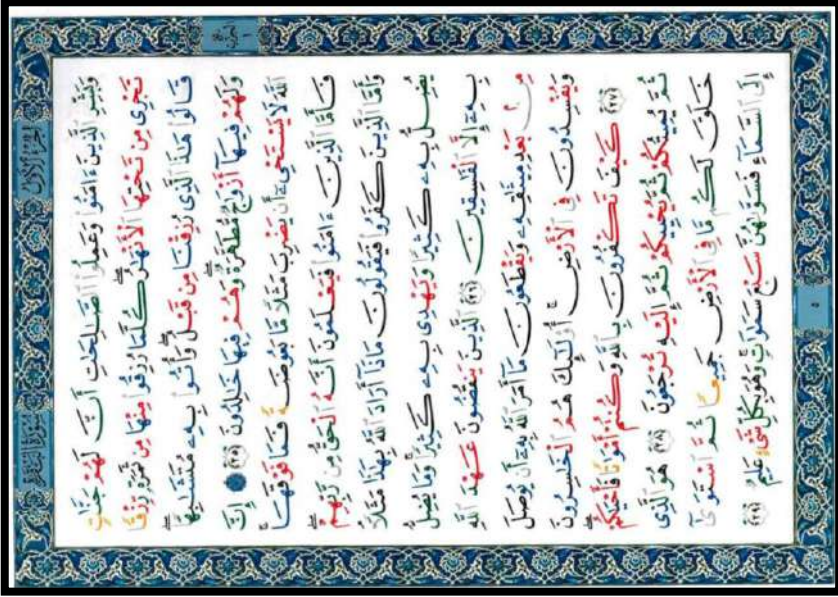 سُورَةُ البَقَرَةِ
الجُزْءُ الأَوَّلُ
وَبَشِّرِ ٱلَّذِينَ ءَامَنُوا۟ وَعَمِلُوا۟ ٱلصَّـٰلِحَـٰتِ أَنَّ لَهُمْ جَنَّـٰتٍ
تَجْرِى مِن تَحْتِهَا ٱلْأَنْهَـٰرُ ۖ كُلَّمَا رُزِقُوا۟ مِنْهَا مِن ثَمَرَةٍ رِّزْقًا ۙ
قَالُوا۟ هَـٰذَا ٱلَّذِى رُزِقْنَا مِن قَبْلُ ۖ وَأُتُوا۟ بِهِۦ مُتَشَـٰبِهًا ۖ
وَلَهُمْ فِيهَآ أَزْوَٰجٌ مُّطَهَّرَةٌ ۖ وَهُمْ فِيهَا خَـٰلِدُونَ ﴿٢٥﴾ ۞ إِنَّ
ٱللَّهَ لَا يَسْتَحْىِۦٓ أَن يَضْرِبَ مَثَلًا مَّا بَعُوضَةً فَمَا فَوْقَهَا ۚ
فَأَمَّا ٱلَّذِينَ ءَامَنُوا۟ فَيَعْلَمُونَ أَنَّهُ ٱلْحَقُّ مِن رَّبِّهِمْ ۖ
وَأَمَّا ٱلَّذِينَ كَفَرُوا۟ فَيَقُولُونَ مَاذَآ أَرَادَ ٱللَّهُ بِهَـٰذَا مَثَلًا ۘ
يُضِلُّ بِهِۦ كَثِيرًا وَيَهْدِى بِهِۦ كَثِيرًا ۚ وَمَا يُضِلُّ
بِهِۦٓ إِلَّا ٱلْفَـٰسِقِينَ ﴿٢٦﴾ ٱلَّذِينَ يَنقُضُونَ عَهْدَ ٱللَّهِ
مِنۢ بَعْدِ مِيثَـٰقِهِۦ وَيَقْطَعُونَ مَآ أَمَرَ ٱللَّهُ بِهِۦٓ أَن يُوصَلَ
وَيُفْسِدُونَ فِى ٱلْأَرْضِ ۚ أُو۟لَـٰٓئِكَ هُمُ ٱلْخَـٰسِرُونَ
﴿٢٧﴾ كَيْفَ تَكْفُرُونَ بِٱللَّهِ وَكُنتُمْ أَمْوَٰتًا فَأَحْيَـٰكُمْ ۖ
ثُمَّ يُمِيتُكُمْ ثُمَّ يُحْيِيكُمْ ثُمَّ إِلَيْهِ تُرْجَعُونَ ﴿٢٨﴾ هُوَ ٱلَّذِى
خَلَقَ لَكُم مَّا فِى ٱلْأَرْضِ جَمِيعًا ثُمَّ ٱسْتَوَىٰٓ
إِلَى ٱلسَّمَآءِ فَسَوَّىٰهُنَّ سَبْعَ سَمَـٰوَٰتٍ ۚ وَهُوَ بِكُلِّ شَىْءٍ عَلِيمٌ ﴿٢٩﴾
٥